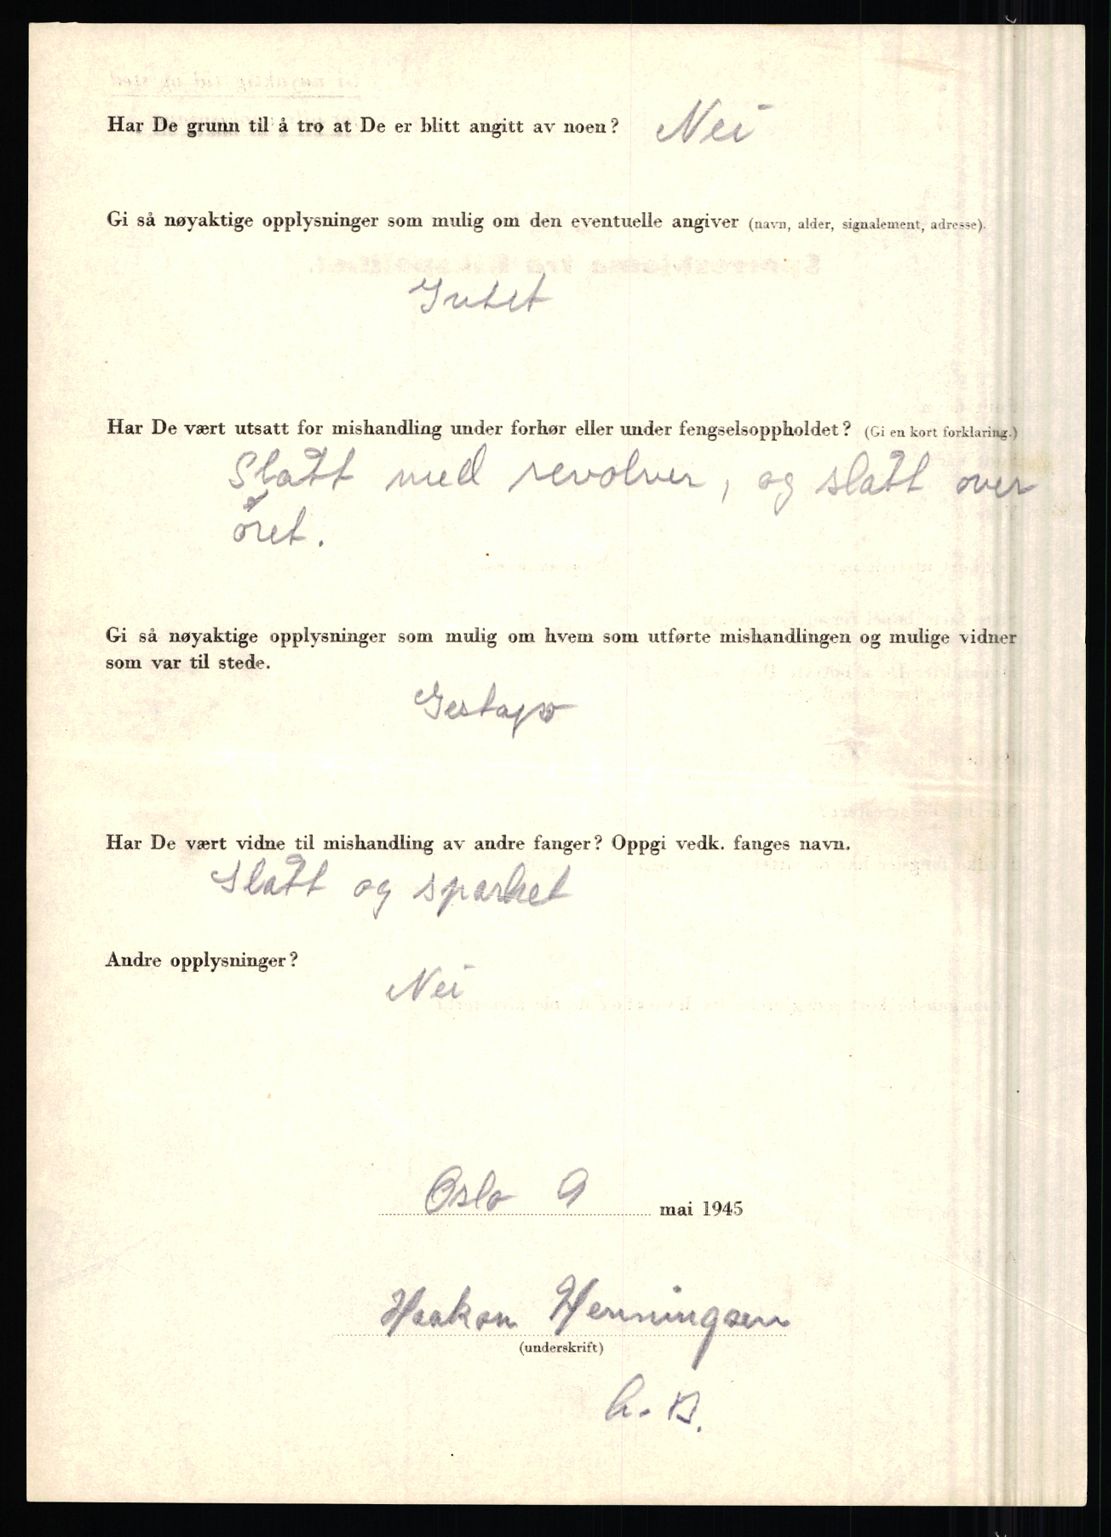 Har De grunn til å tro at De er blitt angitt av noen? Nei
Gi så nøyaktige opplysninger som mulig om den eventuelle angiver (navn, alder, signalement, adresse).
Intet
Har De vært utsatt for mishandling under forhør eller under fengselsoppholdet? (Gi en kort forklaring.)
Slått med revolver, og slått over
øret.
Gi så nøyaktige opplysninger som mulig om hvem som utførte mishandlingen og mulige vidner
som var til stede.
Gestapo
Har De vært vidne til mishandling av andre fanger? Oppgi vedk. fanges navn.
Slått og sparket
Andre opplysninger?
Nei
Oslo 9 mai 1945
Haakon Henningsen
(underskrift)